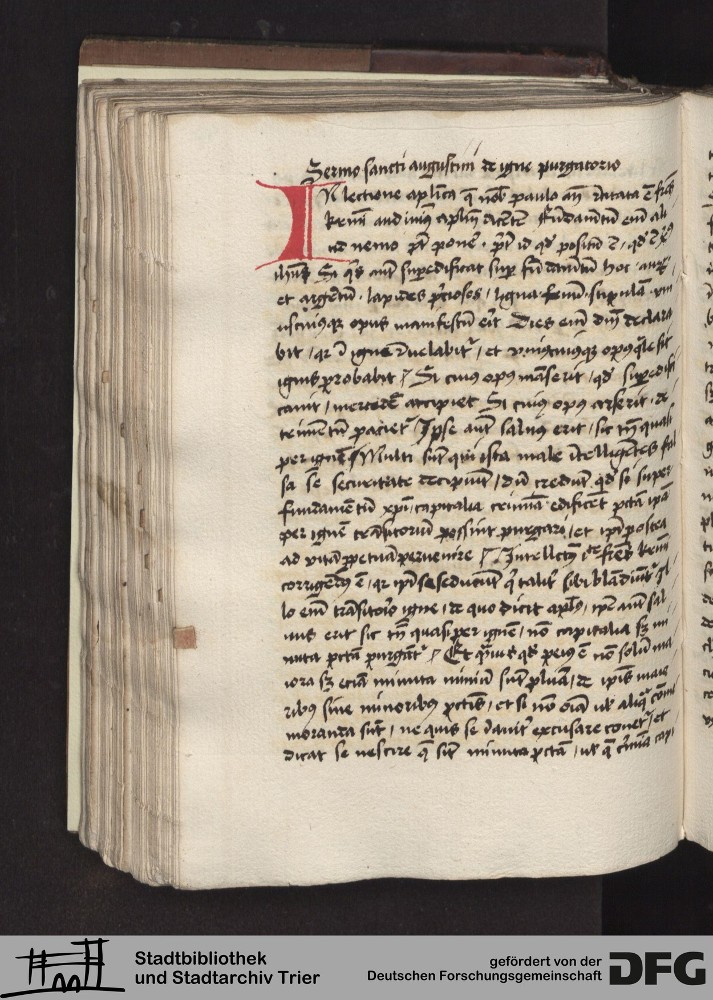 Sermo sancti augustini de igne purgatorio
IN lectione aplica q nob paulo an recitata e frēs
kmi audiuim aplm dicete fundamentu eni ali
ud nemo pt pone · pt id qd positu e · qd e xps
ihus Si qs aut supedificat sup fudamtu hoc · auru
et argetu · lapides pciosos / ligna · fenu · stipula · vni
uscuiusqz opus manifestu erit Dies eni dni declara
bit / qr i igne reuelabit / et vniuscuiusqz opus qle sit
ignis probabit Si cuius opus manserit / qd supedifi
cauit / mercede accipiet Si cuius opus arserit · de
trimentu paciet Ipse aut saluus erit / sic tn quasi
per igne Multi sut qui ista male itelligentes fal
sa se securitate decipiunt / du credunt qd si super
fundamentu xpi capitalia crimina edificent pcta ipa
per igne transitoriu possint purgari / et ipi postea
ad vita ppetua peruenire Intellectus iste frēs kmi
corrigendus e / qr ipi se seducunt q talit sibi bladiunt Il
lo eni transitorio igne / de quo dicit apls / ipe aut sal
uus erit sic tn quasi per igne / no capitalia sz mi
nuta pcta purgant Et quis qd peius e no solu ma
iora sz ecia minuta nimiu sut plura / de ipis maio
ribus siue minoribus pctis / et si no oia uel aliqua comme
moranda sut / ne quis se dauit excusare conet / et
dicat se nescire q sit minuta pcta / uel q crimina capi
Stadtbibliothek
und Stadtarchiv Trier
gefördert von der
Deutschen Forschungsgemeinschaft
DFG